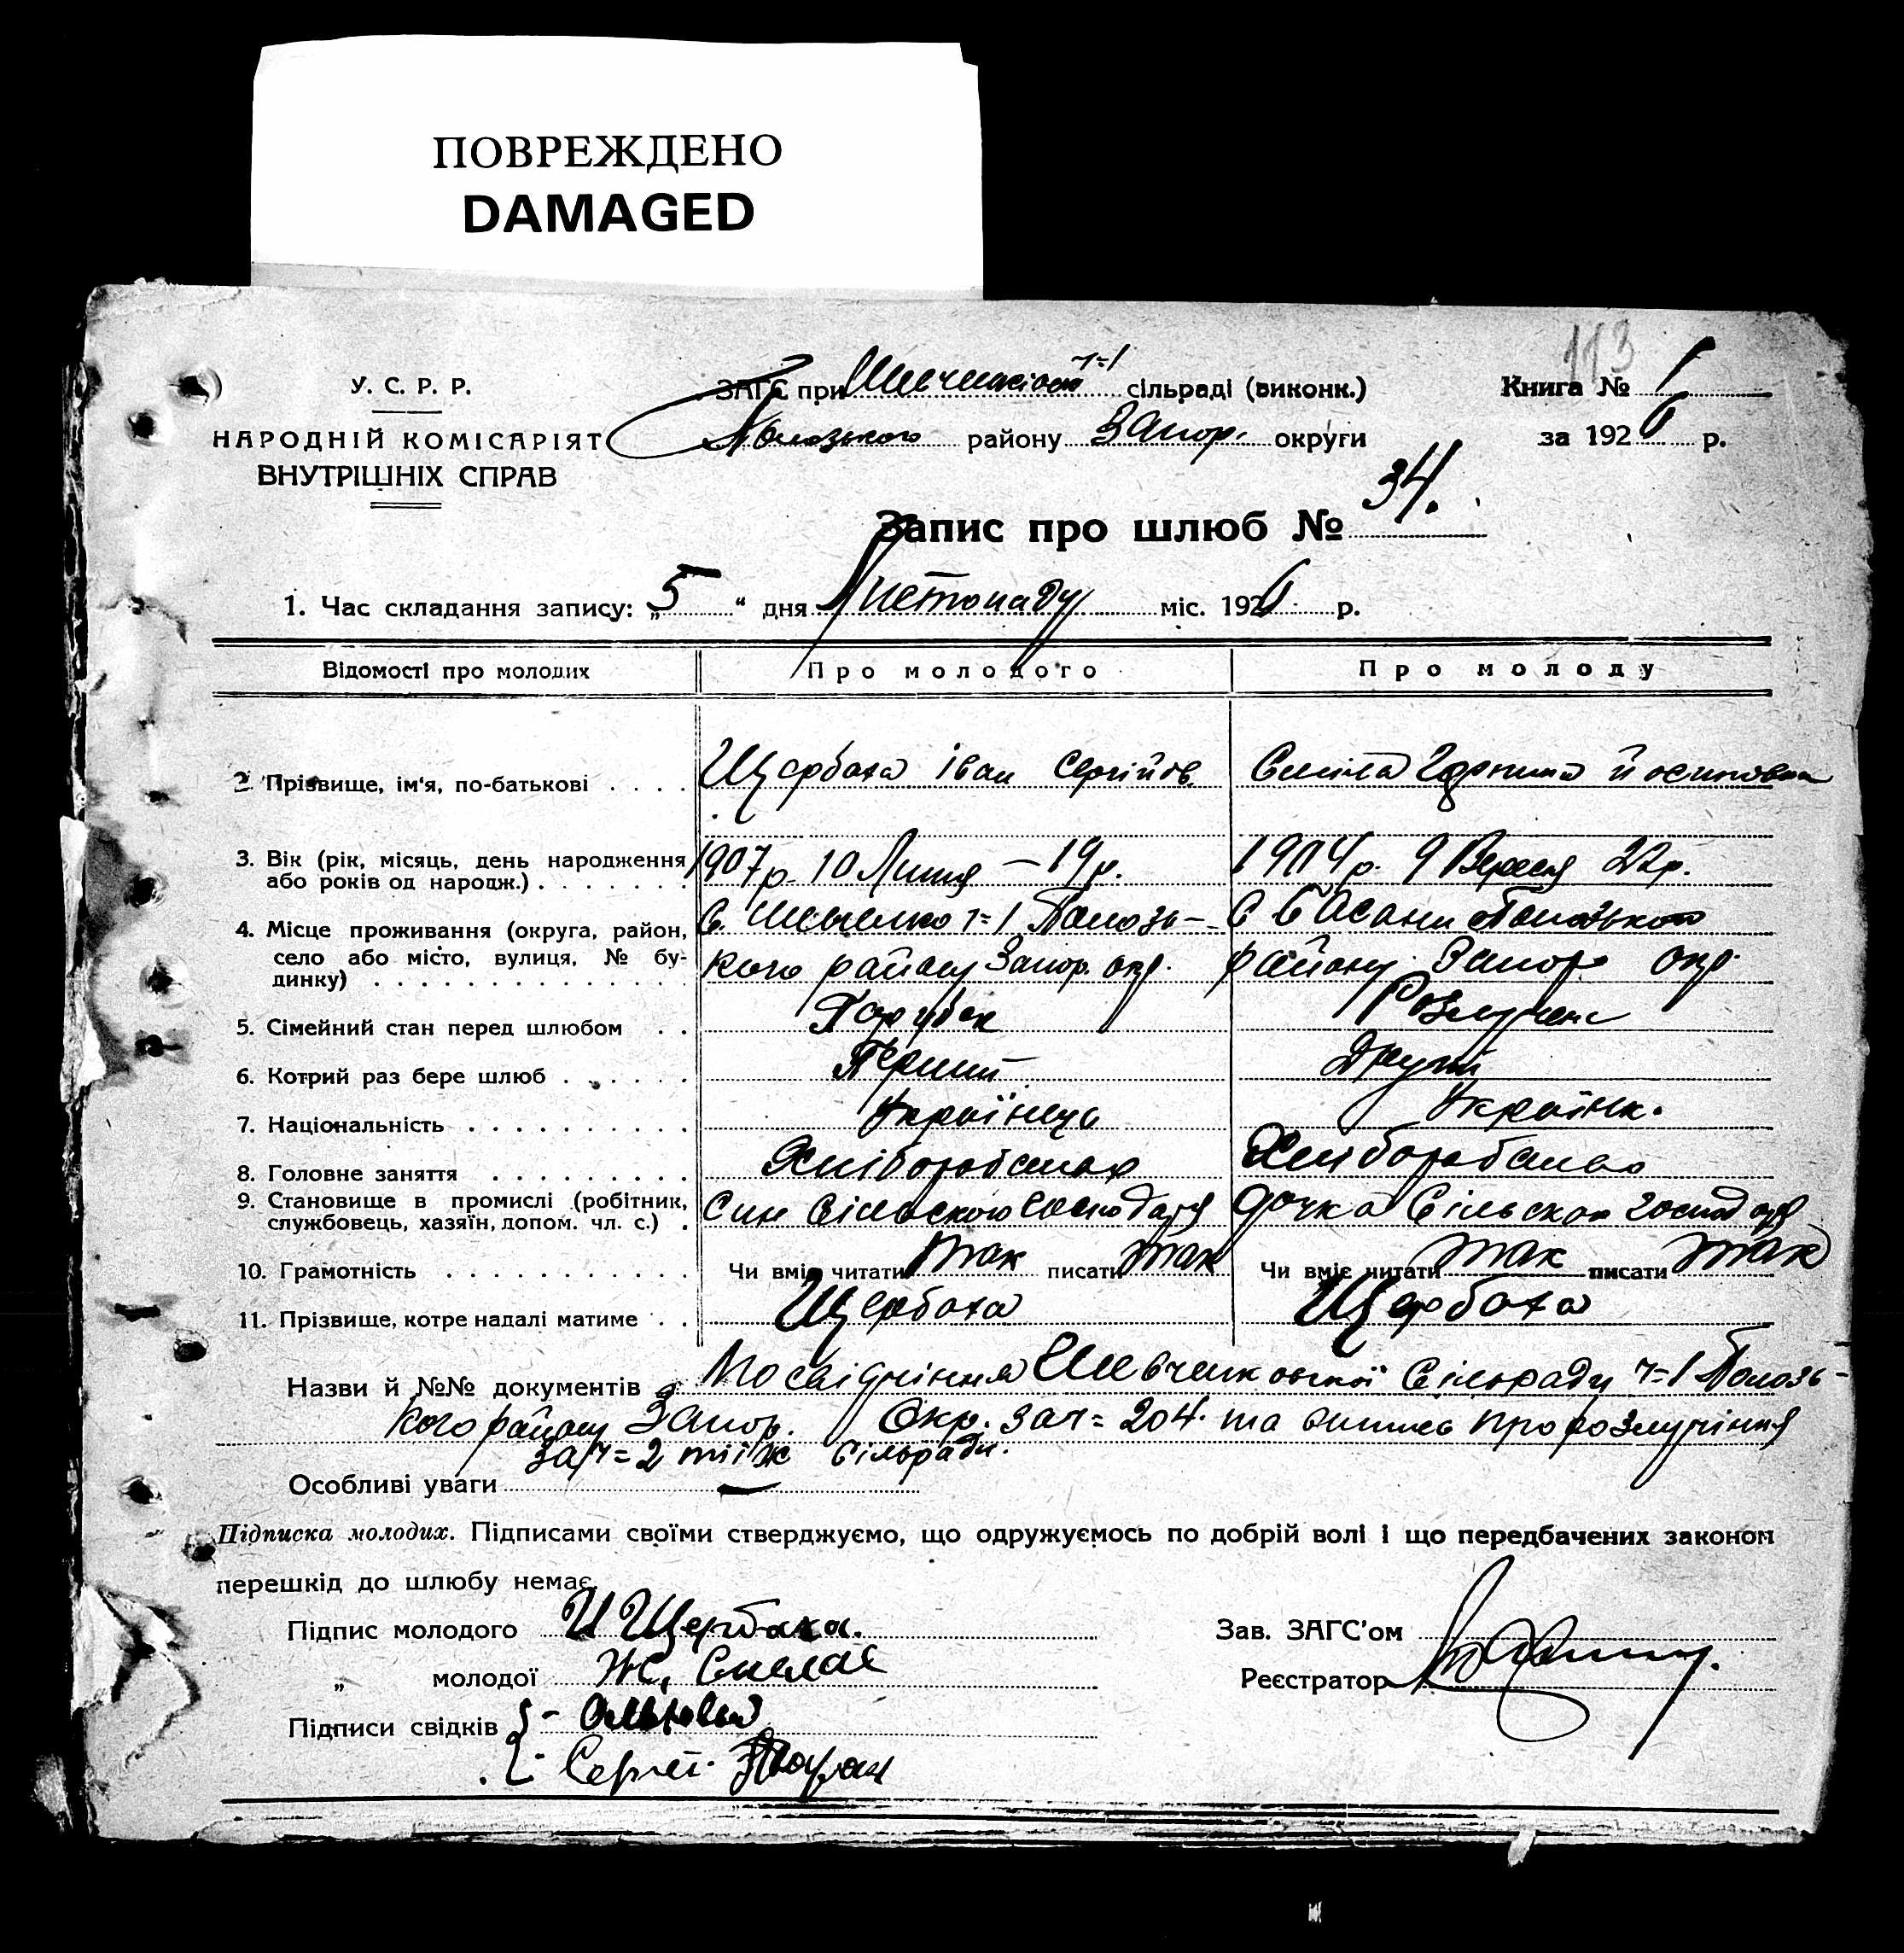 ПОВРЕЖДЕНО
DAMAGED
113
У. С. Р. Р.
НАРОДНІЙ КОМІСАРІЯТ
ВНУТРІШНІХ СПРАВ
ЗАГС при ч=1 сільраді (виконк.)
Полозького району Запор. округи
Книга № 1
за 1926 р.
Запис про шлюб № 34.
1. Час складання запису: „5“ дня Листопаду міс. 1926 р.
Відомості про молодих Про молодого Про молоду
2. Прізвище, ім'я, по-батькові . . . . Щербаха Іван Сергійов. Сміла Йосиповна
3. Вік (рік, місяць, день народження або років од народж.) . . . . . . . 1907 р. 10 Липня — 19 р. 1904 р. 9 Вересня 22 р.
4. Місце проживання (округа, район, село або місто, вулиця, № будинку) . . . . . . . . . . . . . . с. Шевченко ч=1 Полозь-
кого району Запор. окр. с Басани Полозького
району Запор окр.
5. Сімейний стан перед шлюбом . . Парубок Розлучена
6. Котрий раз бере шлюб . . . . . . Перший Другий
7. Національність . . . . . . . . . . Українець Українк.
8. Головне заняття . . . . . . . . . Хліборобства Хліборобство
9. Становище в промислі (робітник, службовець, хазяїн, допом. чл. с.) . Син Сільського господаря дочка Сільсько господаря
10. Грамотність . . . . . . . . . . . Чи вміє читати так писати так Чи вміє читати так писати так
11. Прізвище, котре надалі матиме . . Щербаха Щербаха
Назви й №№ документів Посвідчіння Шевченковської Сільради ч=1 Полозь-
кого району Запор. Окр. за ч=204. та випись про розлучіння
за ч=2 тіїж сільради.
Особливі уваги —
Підписка молодих. Підписами своїми стверджуємо, що одружуємось по добрій волі і що передбачених законом
перешкід до шлюбу немає.
Підпис молодого И Щербаха.
„ молодої
Підписи свідків
Сергей
Зав. ЗАГС'ом
Реєстратор